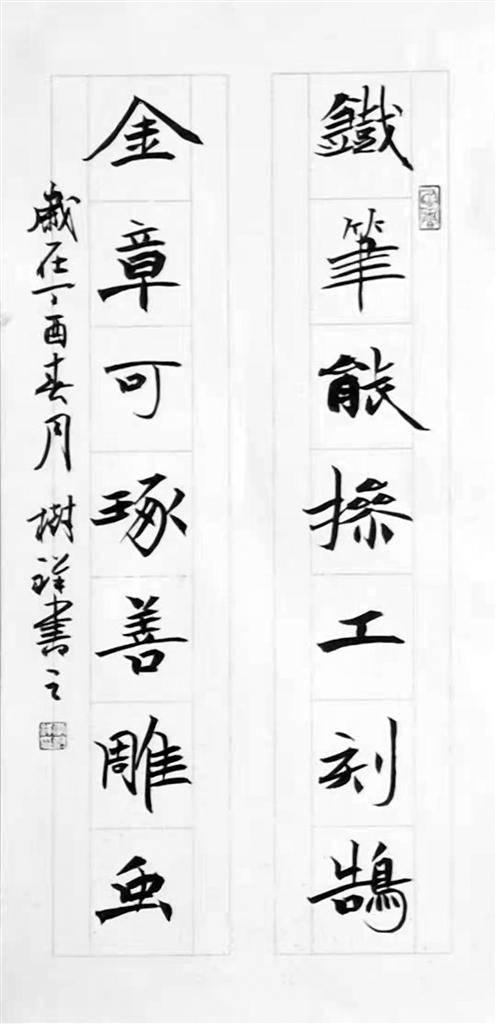 鐵筆能操工刻鵠
金章可琢善雕虫
歲在丁酉春月 樹祥書之